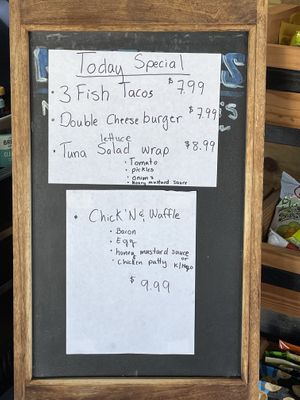 Today Special
• 3 Fish Tacos $7.99
• Double Cheese burger $7.99
lettuce
• Tuna Salad wrap $8.99
• Tomato
• pickles
• onions
• Honey mustard sauce
• Chick'N & Waffle
• Bacon
• Egg
• honey mustard sauce
or
• Chicken patty
$9.99